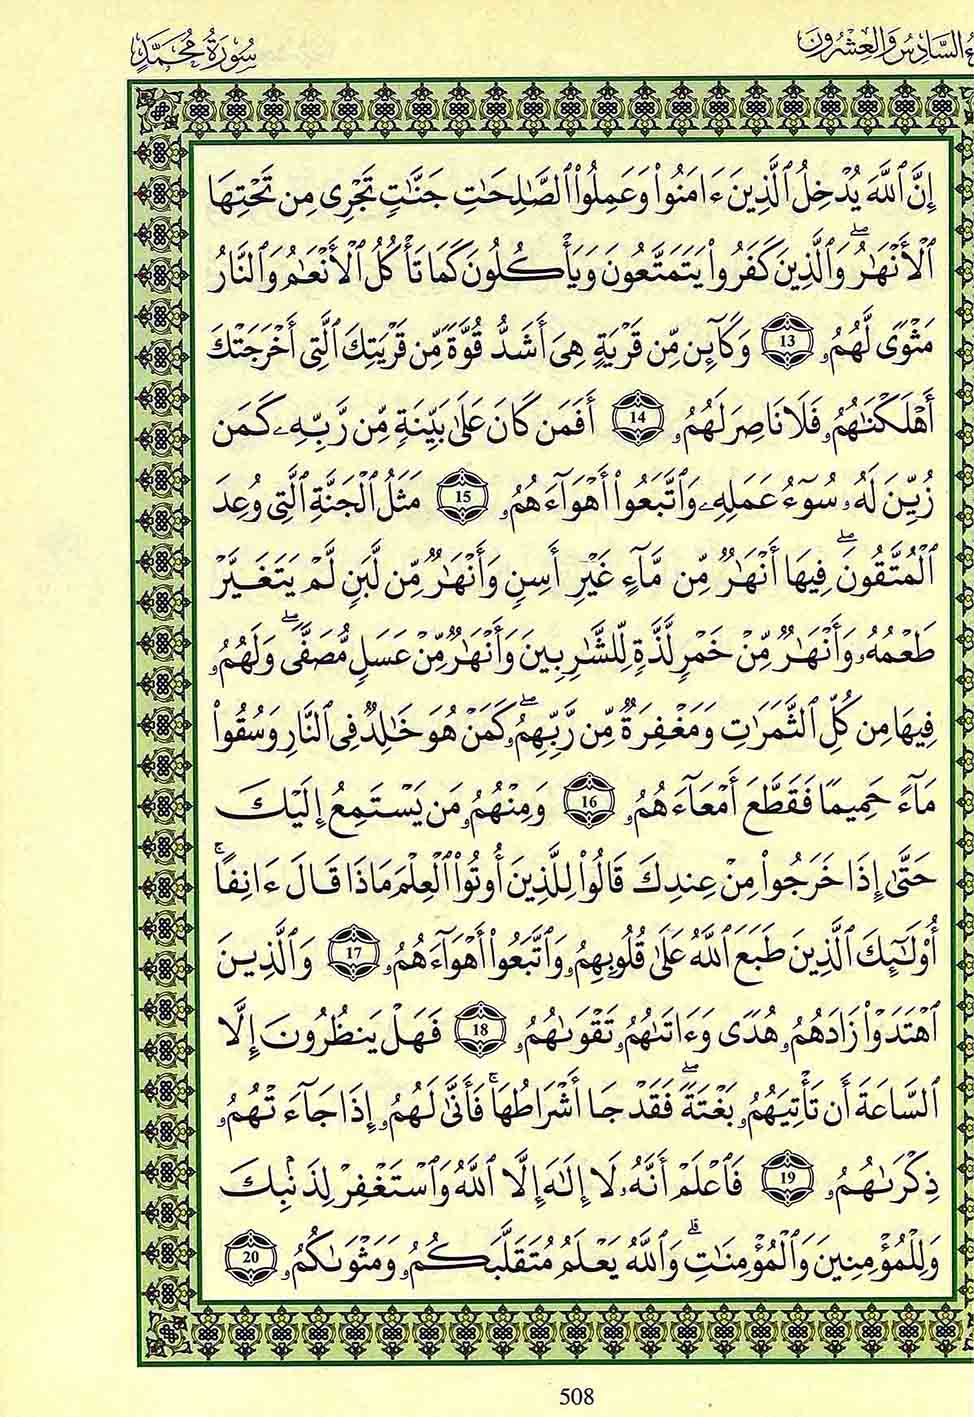 ءُ السَّادِسُ وَالْعِشْرُونَ
سُورَةُ مُحَمَّدٍ
إِنَّ ٱللَّهَ يُدْخِلُ ٱلَّذِينَ ءَامَنُواْ وَعَمِلُواْ ٱلصَّٰلِحَٰتِ جَنَّٰتٍ تَجْرِى مِن تَحْتِهَا
ٱلْأَنْهَٰرُۖ وَٱلَّذِينَ كَفَرُواْ يَتَمَتَّعُونَ وَيَأْكُلُونَ كَمَا تَأْكُلُ ٱلْأَنْعَٰمُ وَٱلنَّارُ
مَثْوًى لَّهُمُۥ 13 وَكَآئِن مِّن قَرْيَةٍ هِىَ أَشَدُّ قُوَّةً مِّن قَرْيَتِكَ ٱلَّتِى أَخْرَجَتْكَ
أَهْلَكْنَٰهُمُۥ فَلَا نَاصِرَ لَهُمُۥ 14 أَفَمَن كَانَ عَلَىٰ بَيِّنَةٍ مِّن رَّبِّهِۦ كَمَن
زُيِّنَ لَهُۥ سُوٓءُ عَمَلِهِۦ وَٱتَّبَعُواْ أَهْوَآءَهُمُۥ 15 مَثَلُ ٱلْجَنَّةِ ٱلَّتِى وُعِدَ
ٱلْمُتَّقُونَۖ فِيهَا أَنْهَٰرٌ مِّن مَّآءٍ غَيْرِ أَسِنٍ وَأَنْهَٰرٌ مِّن لَّبَنٍ لَّمْ يَتَغَيَّرْ
طَعْمُهُۥ وَأَنْهَٰرٌ مِّنْ خَمْرٍ لَّذَّةٍ لِّلشَّٰرِبِينَ وَأَنْهَٰرٌ مِّنْ عَسَلٍ مُّصَفًّىۖ وَلَهُمُۥ
فِيهَا مِن كُلِّ ٱلثَّمَرَٰتِ وَمَغْفِرَةٌ مِّن رَّبِّهِمُۥۖ كَمَنْ هُوَ خَٰلِدٌ فِى ٱلنَّارِ وَسُقُواْ
مَآءً حَمِيمًا فَقَطَّعَ أَمْعَآءَهُمُۥ 16 وَمِنْهُمُۥ مَن يَسْتَمِعُ إِلَيْكَ
حَتَّىٰ إِذَا خَرَجُواْ مِنْ عِندِكَ قَالُواْ لِلَّذِينَ أُوتُواْ ٱلْعِلْمَ مَاذَا قَالَ ءَانِفًاۚ
أُوْلَٰٓئِكَ ٱلَّذِينَ طَبَعَ ٱللَّهُ عَلَىٰ قُلُوبِهِمُۥ وَٱتَّبَعُواْ أَهْوَآءَهُمُۥ 17 وَٱلَّذِينَ
ٱهْتَدَوْاْ زَادَهُمُۥ هُدًى وَءَاتَىٰهُمُۥ تَقْوَىٰهُمُۥ 18 فَهَلْ يَنظُرُونَ إِلَّا
ٱلسَّاعَةَ أَن تَأْتِيَهُمُۥ بَغْتَةًۖ فَقَدْ جَا أَشْرَاطُهَاۚ فَأَنَّىٰ لَهُمُۥ إِذَا جَآءَتْهُمُۥ
ذِكْرَىٰهُمُۥ 19 فَٱعْلَمْ أَنَّهُۥ لَا إِلَٰهَ إِلَّا ٱللَّهُ وَٱسْتَغْفِرْ لِذَنۢبِكَ
وَلِلْمُؤْمِنِينَ وَٱلْمُؤْمِنَٰتِۗ وَٱللَّهُ يَعْلَمُ مُتَقَلَّبَكُمُۥ وَمَثْوَىٰكُمُۥ 20
508